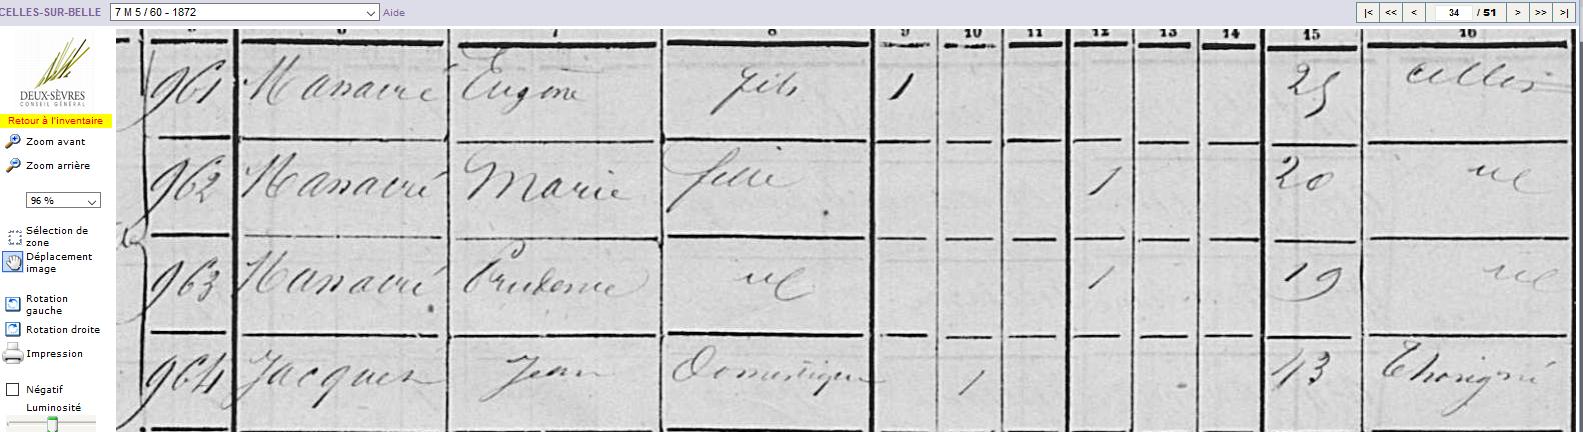 CELLES-SUR-BELLE 7 M 5 / 60 - 1872 Aide |< << < 34 / 51 > >> >|
6 7 8 9 10 11 12 13 14 15 16
DEUX-SÈVRES
CONSEIL GÉNÉRAL
Retour à l'inventaire
Zoom avant
Zoom arrière
96 %
Sélection de
zone
Déplacement
image
Rotation
gauche
Rotation droite
Impression
Négatif
Luminosité
961 Eugène fils 1 25 Celles
962 Marie fille 1 20 id
963 Prudence id 1 19 id
964 Jacques Jean Domestique 1 43 Thorigné